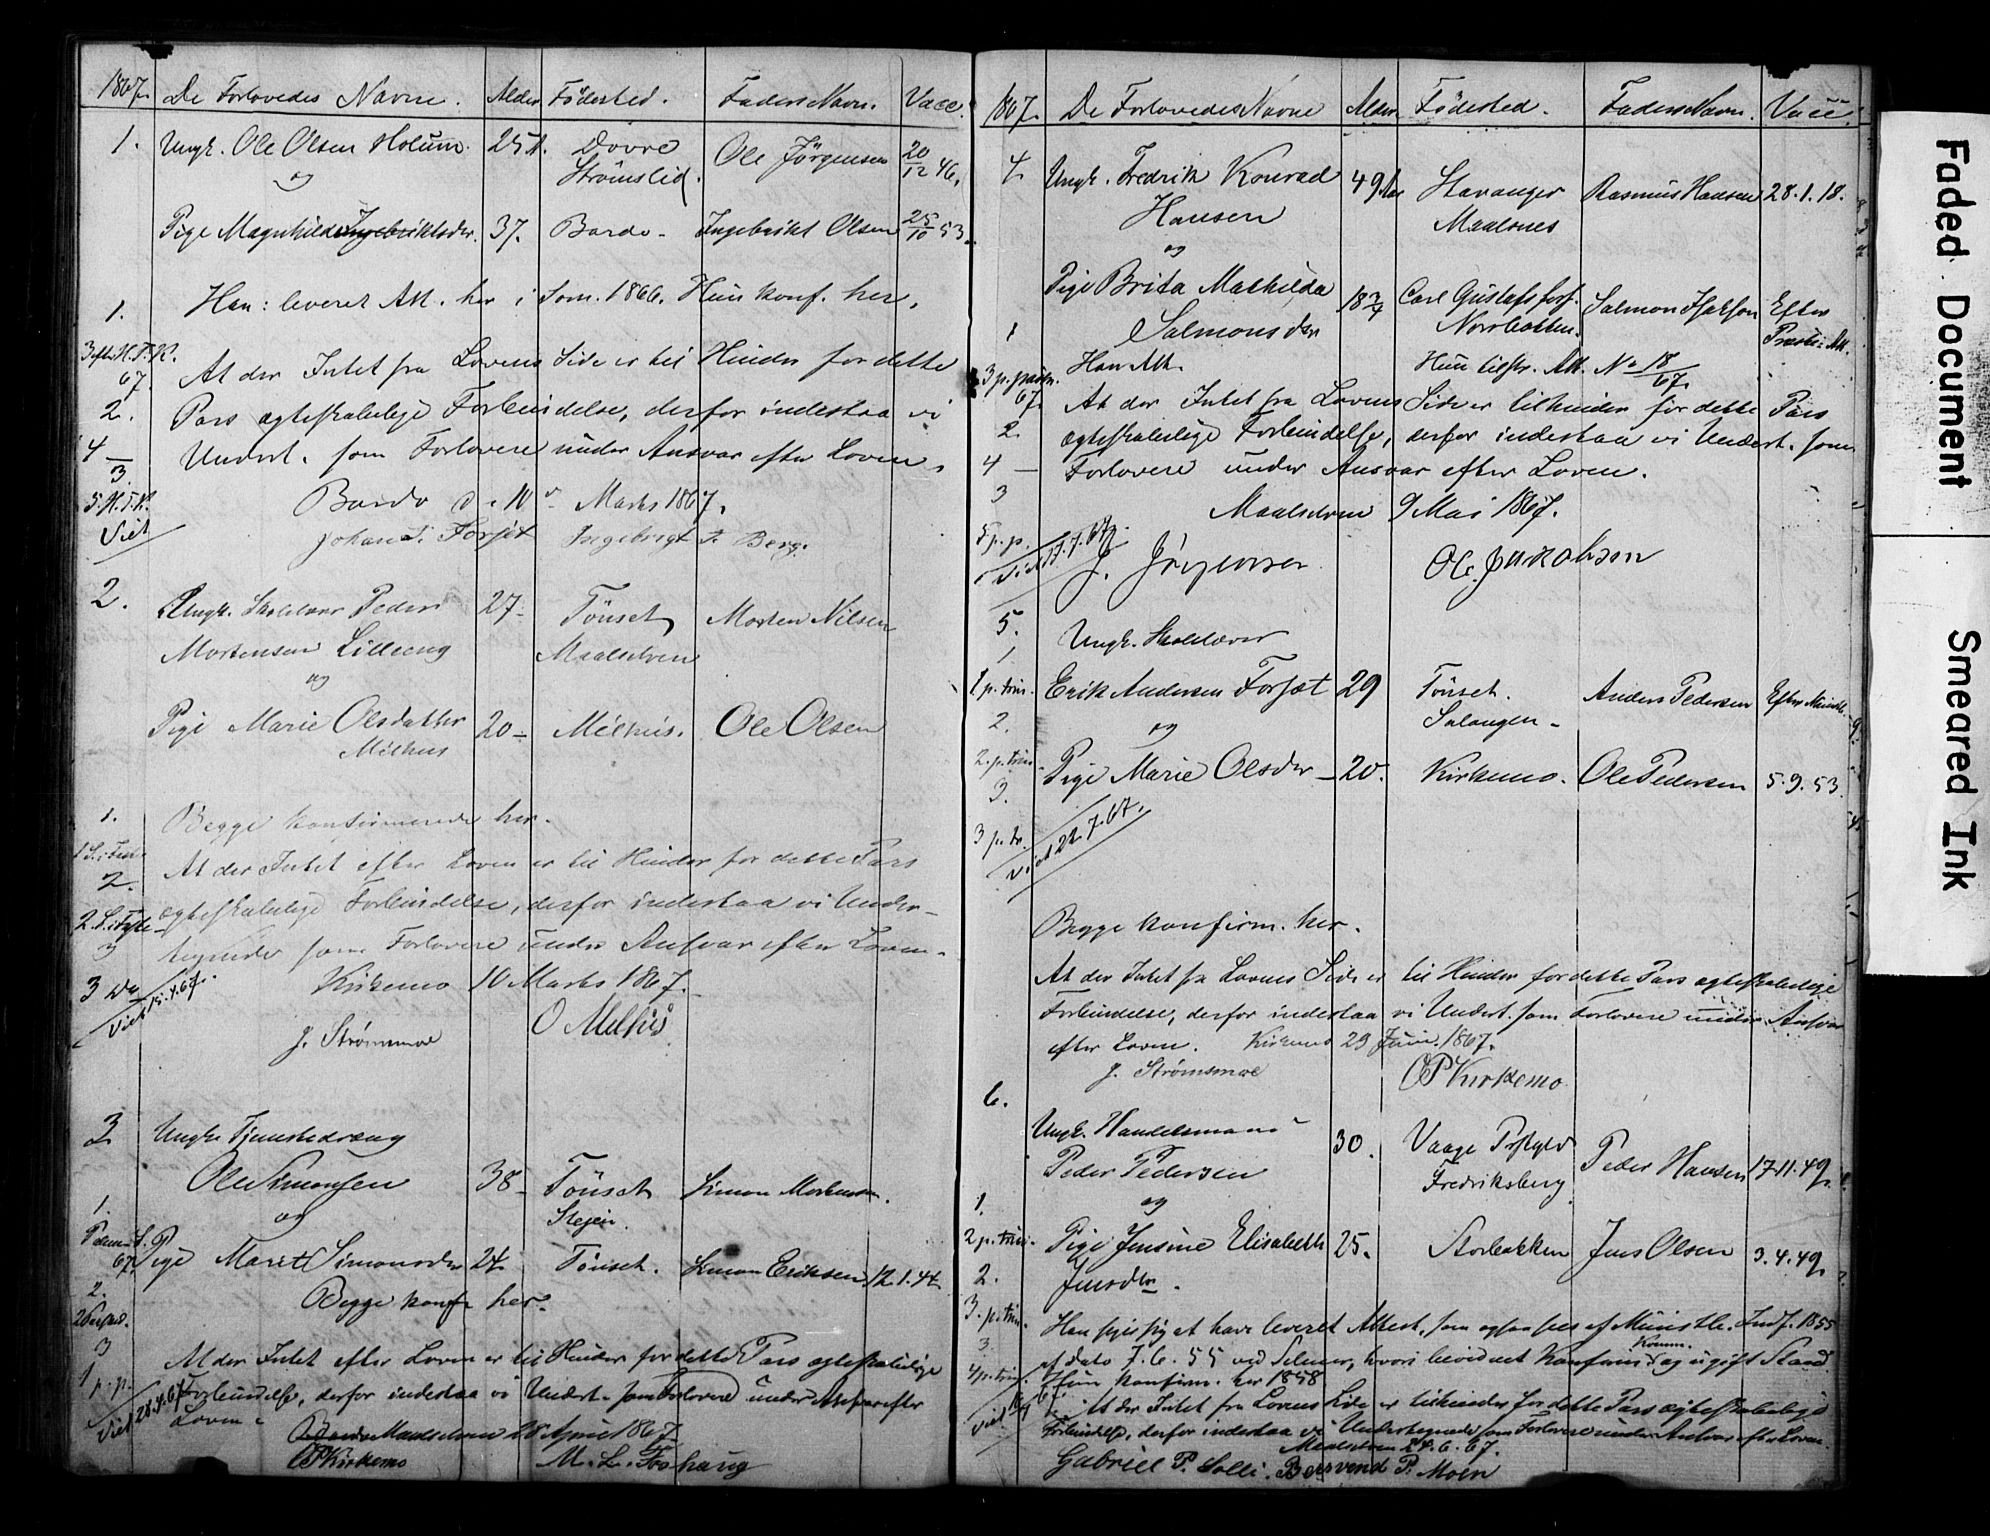 1867. De Forlovedes Navne. Alder Födested. Faders Navn. Vacc.
1. Ungk. Ole Olsen Holum. 25 A. Dovre Ole Jörgensen 20/12 46.
og Strömslid.
Pige Magnhild Ingebriktsdr. 37. Bardo - Ingebrikt Olsen 25/10 53.
1. Han: leveret Att. her i Som. 1866. Hun konf. her.
3 eft. H. T. K. 67. At der Intet fra Lovens Side er til Hinder for dette
2. Pars ægteskabelige Forbindelse, derfor indestaa vi
4 - Undert. som Forlovere under Ansvar efter Loven.
3.
5. H. T. K. Bardo d. 10 Marts 1867.
Viet Johan T. Forset Ingebrigt T. Berg.
2. Ungk. Skoledr Peder 27- Tönset Morten Nilsen
Mortensen Lilleeng Maalselven
og
Pige Marie Olsdatter 20- Melhus. Ole Olsen
Melhus
1. Begge konfirmerede her.
1 S. i Fast. At der Intet efter Loven er til Hinder for dette Pars
2. ægteskabelige Forbindelse, derfor indestaa vi Under-
2. S. i Faste tegnede som Forlovere under Ansvar efter Loven.
3
3 Do Kirkemo 10 Marts 1867.
Viet 15.4.67. J. Strømsmoe O Melhus
3 Ungk. Tjenestedreng
Ole Simonsen 38- Tönset Simon Mortensen.
1. og Stejen.
Palme S. P. 67. Pige Marit Simonsdr 24 Tönset. Simon Eriksen 12.1.44
2. Begge konf. her.
2 Paaskd.
3 At der Intet efter Loven er til Hinder for dette Pars ægteskabelige
1 p. p. Forbindelse, derfor indestaa vi Undert. som Forlovere under Ansvar efter
Viet 28.4.67 Loven.
Bardo Maalselven 28 April 1867
OPKirkemo M. L. Foshaug
1867. De Forlovedes Navne Alder Födested. Faders Navn. Vacc.
4 Ungk. Fredrik Konrad 49 Aar Stavanger Rasmus Hansen 28.1.18.
Hansen Maalsnes
og
Pige Brita Mathilda 18 3/4 Carl Gustafs fors. Salmon Efter
1 Salmonsdr Norrbotten. Præste-Att.
Han Att. Hun tilstr. Att. No 18/67.
3 p. paaske. 67. At der Intet fra Lovens Side er til hinder for dette Pars
2. ægteskabelige Forbindelse, derfor indestaa vi Undert. som
4 - Forlovere under Ansvar efter Loven.
3 Maalselven 9 Mai 1867.
5 p. p.
Viet 17.7.67. J. Jørgensen Ol. Jakobsen
5. Ungk. Skolelærer
1
1 p. trin. Erik Andersen Forset 29 Tönset. Anders Pedersen Efter Ministb.
2. og Salangen -
2. p. trin. Pige Marie Olsdr - 20. Kirkemo. Ole Pedersen 5.9.53.
3.
3 p. tr. Viet 22.7.67.
Begge konfirm. her.
At der Intet fra Lovens Side er til Hinder for dette Pars ægteskabelige
Forbindelse, derfor indestaa vi Undert. som Forlovere under Ansvar
efter Loven. Kirkemo 23 Juni 1867.
J. Strømsmoe OPKirkemo
6.
Ungk. Handelsmand 30. Vaage Peder Hansen 17.11.49.
Peder Pedersen Fredriksberg
1. og
2 p. trin. Pige Jensine Elisabeth 25. Storbakken Jens Olsen 3.4.49.
2. Jensdtr.
3. p. trin. Han siges at have leveret Attest, som ogsaa sees af Ministb. Indf. 1855
3. af Dato 7.6.55 ved Selmer, hvori bevidnet Konfirm. Komm. og ugift Stand
4 p. trin. Hun konfirm. her 1858
Viet At der Intet fra Lovens Side er til hinder for dette Pars ægteskabelige
Forbindelse, derfor indestaa vi Undertegnede som Forlovere under Ansvar efter Loven.
Maalselven 24.6.67.
Gabriel P. Solli. Bersvend P. Moen
Faded Document
Smeared Ink